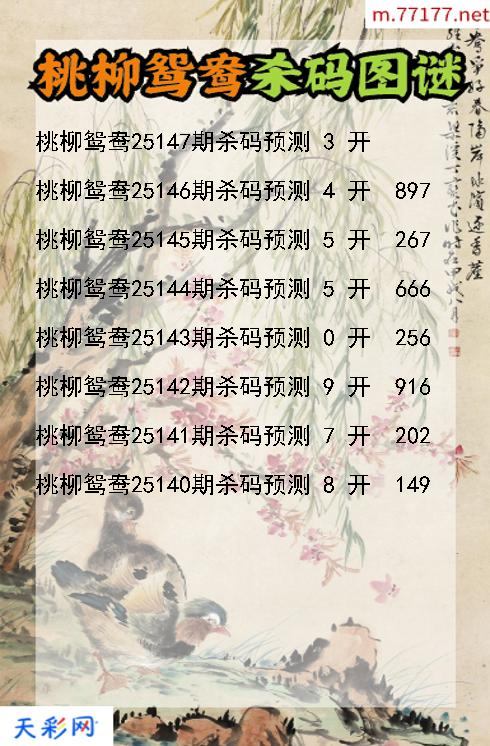 m.77177.net
桃柳鸳鸯杀码图谜
桃柳鸳鸯25147期杀码预测 3 开
桃柳鸳鸯25146期杀码预测 4 开 897
桃柳鸳鸯25145期杀码预测 5 开 267
桃柳鸳鸯25144期杀码预测 5 开 666
桃柳鸳鸯25143期杀码预测 0 开 256
桃柳鸳鸯25142期杀码预测 9 开 916
桃柳鸳鸯25141期杀码预测 7 开 202
桃柳鸳鸯25140期杀码预测 8 开 149
天彩网